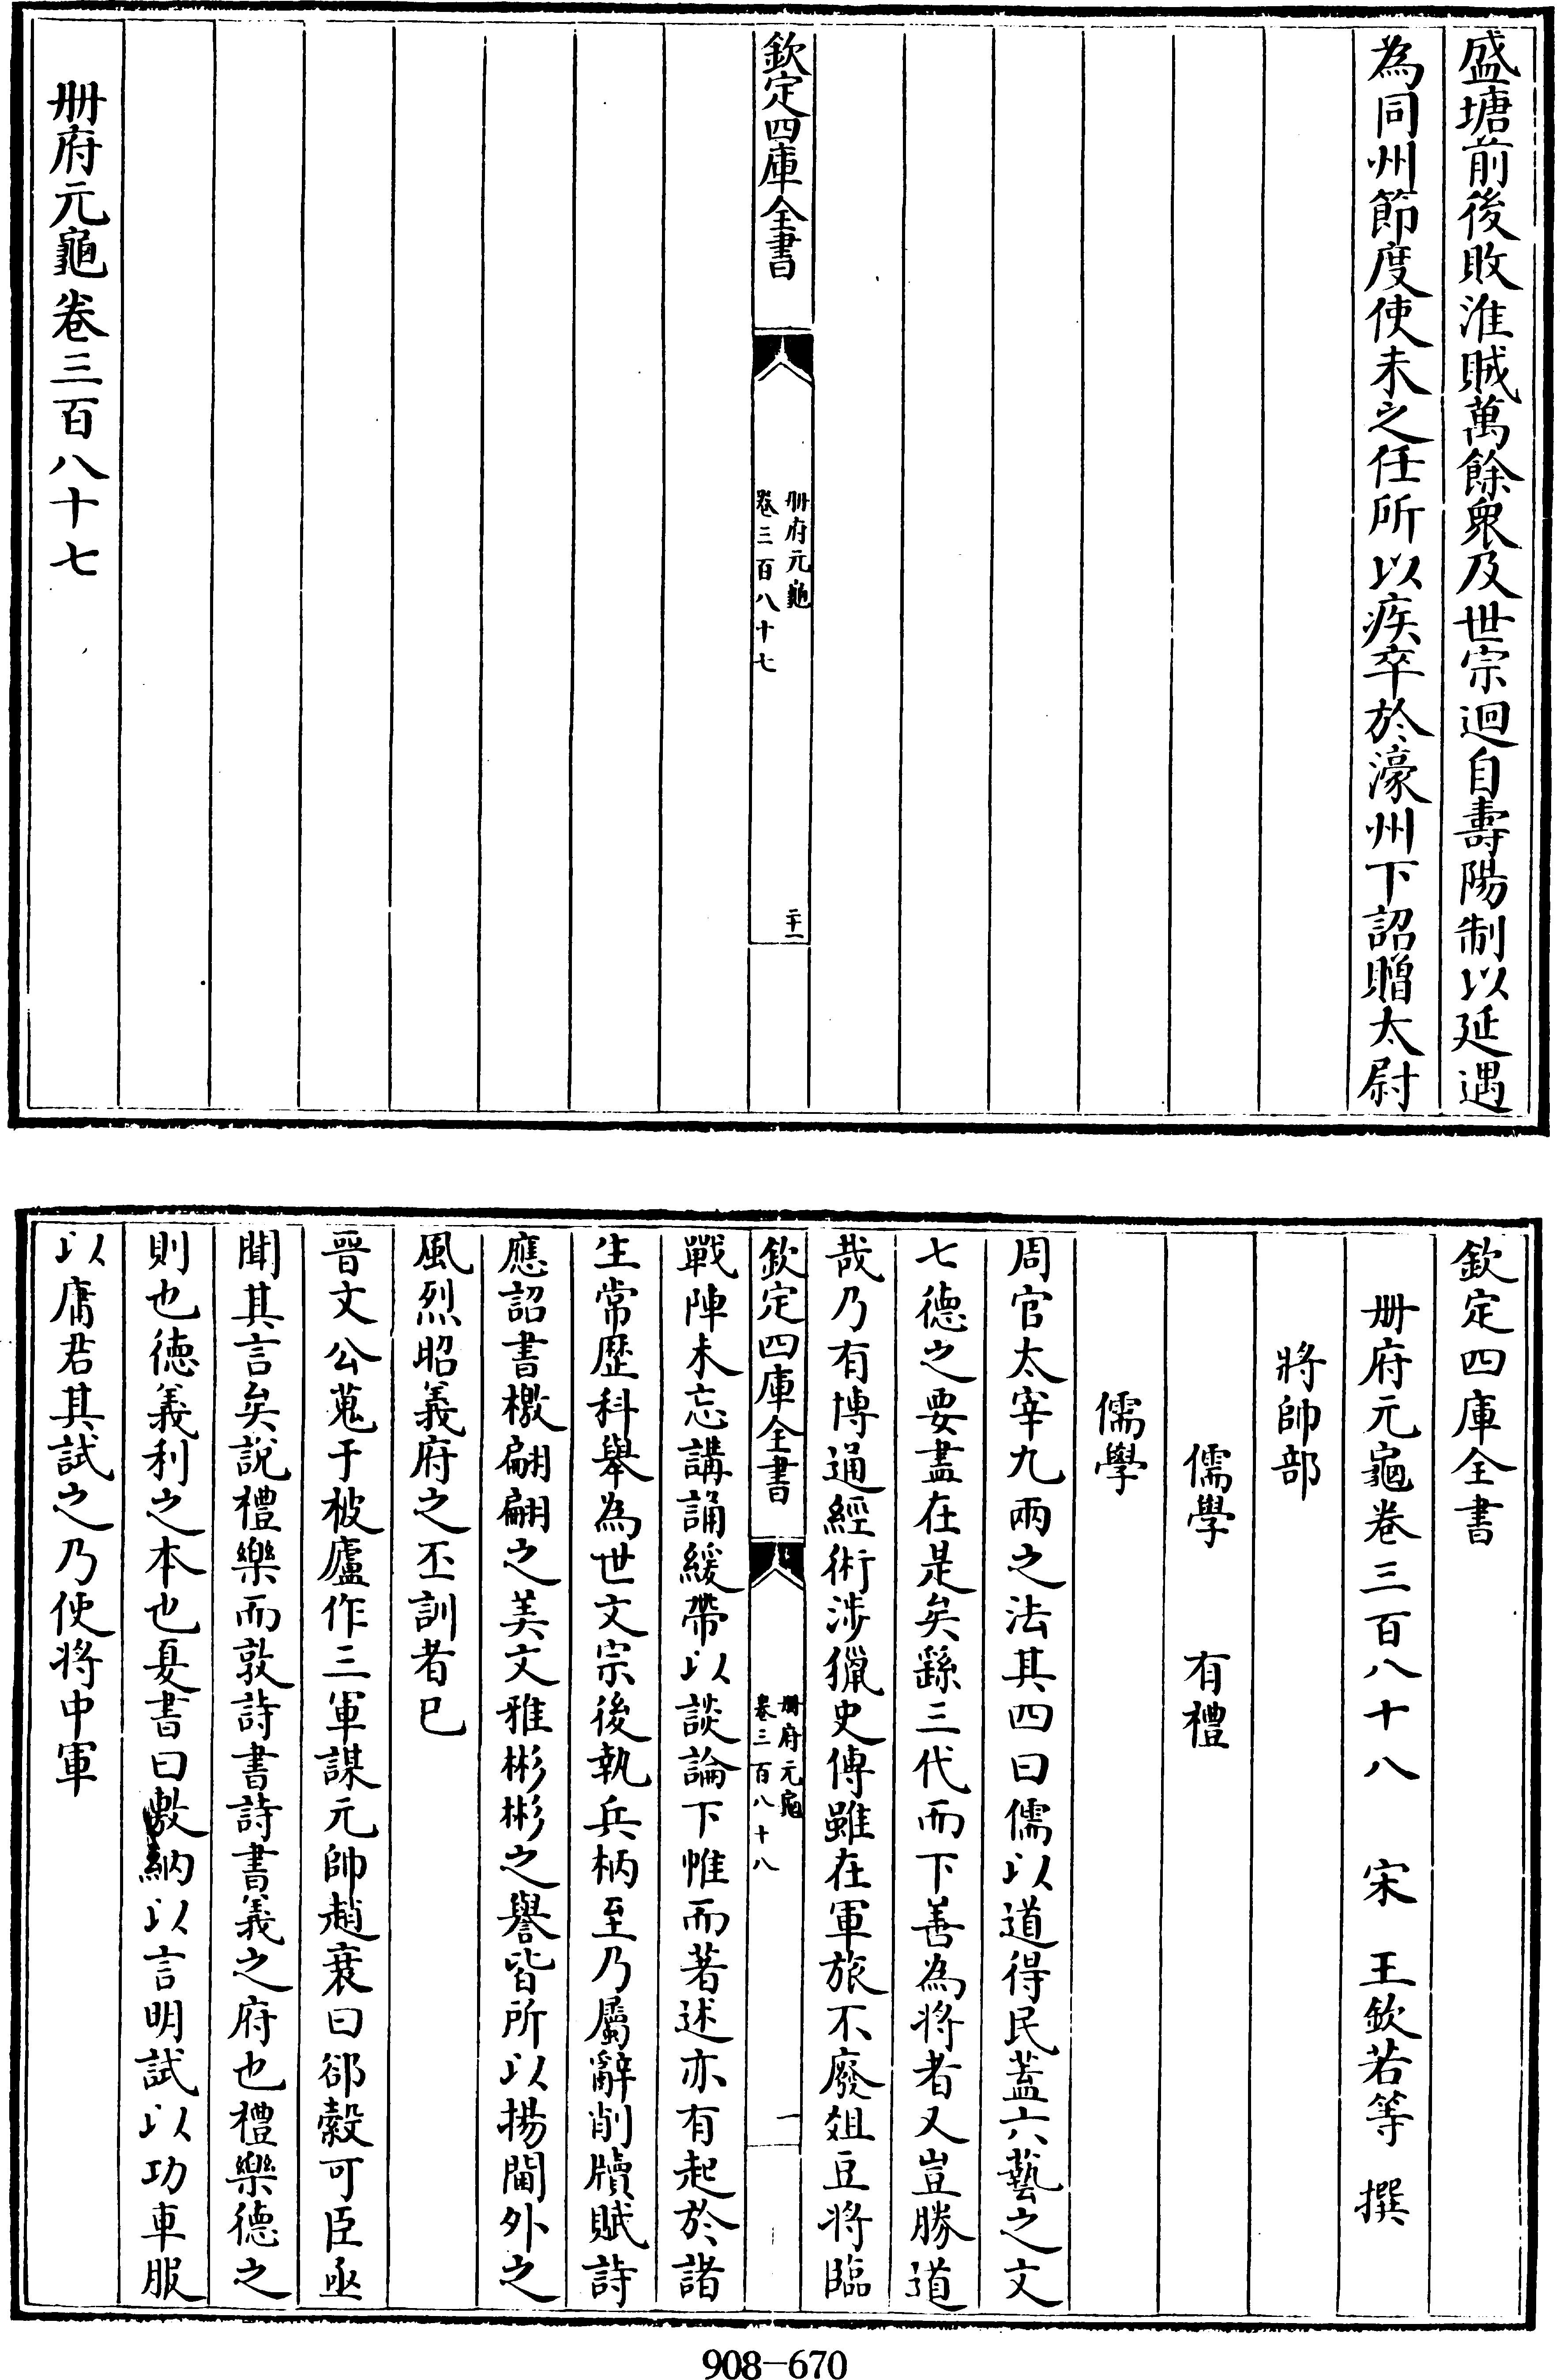 盛塘前後敗淮賊萬餘衆及世宗迴自壽陽制以延遇
為同州節度使未之任所以疾卒於濠州下詔贈太尉
欽定四庫全書
冊府元龜
卷三百八十七
二十一
冊府元龜卷三百八十七
欽定四庫全書
冊府元龜卷三百八十八 宋 王欽若等 撰
將帥部
儒學 有禮
儒學
周官太宰九兩之法其四曰儒以道得民蓋六藝之文
七德之要盡在是矣繇三代而下善為將者又豈勝道
哉乃有博通經術涉獵史傳雖在軍旅不廢俎豆將臨
欽定四庫全書
冊府元龜
卷三百八十八
一
戰陣未忘講誦緩帶以談論下帷而著述亦有起於諸
生常歷科舉為世文宗後執兵柄至乃屬辭削牘賦詩
應詔書檄翩翩之美文雅彬彬之譽皆所以揚閫外之
風烈昭義府之丕訓者已
晉文公蒐于被廬作三軍謀元帥趙衰曰郤縠可臣亟
聞其言矣說禮樂而敦詩書詩書義之府也禮樂德之
則也德義利之本也夏書曰敷納以言明試以功車服
以庸君其試之乃使將中軍
908-670